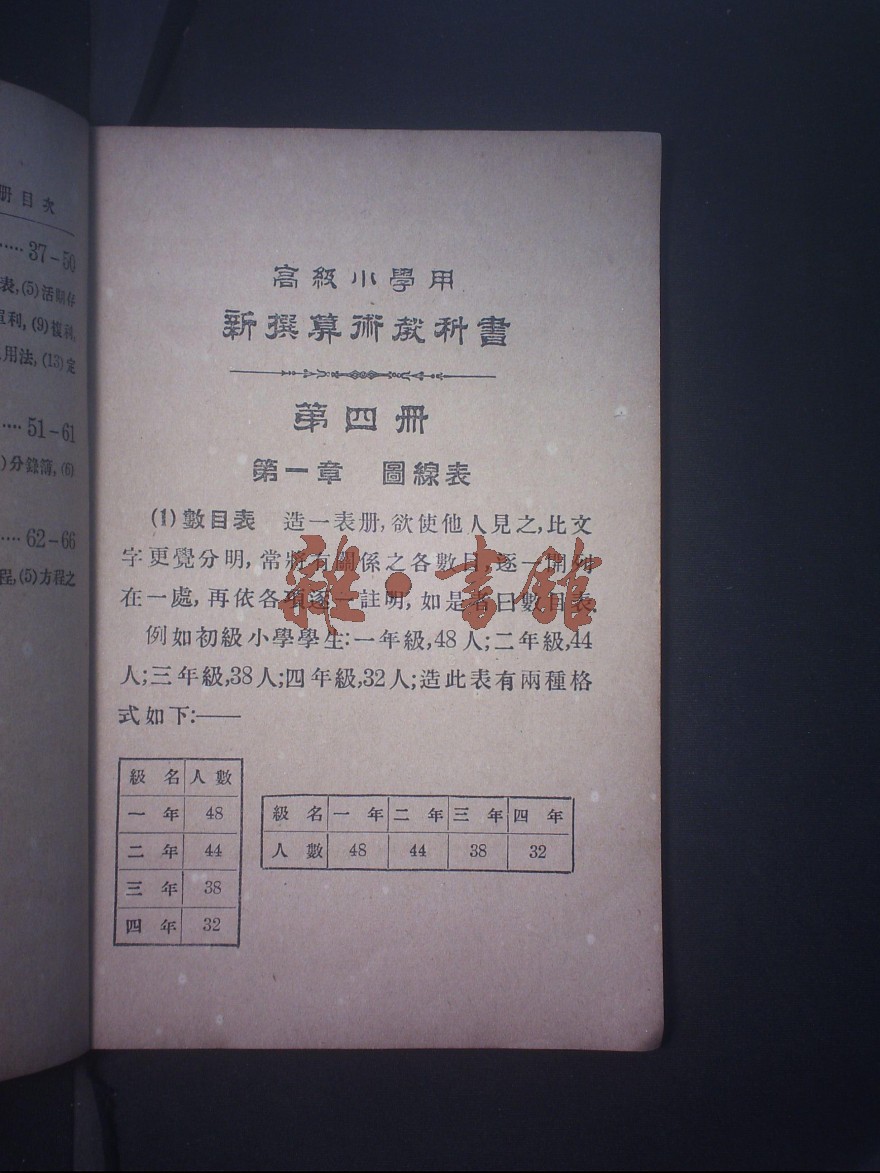 册目次
37-50
表,(5)活期存
單利,(9)複利,
用法,(13)定
51-61
)分錄簿,(6)
62-66
程,(5)方程之
高級小學用
新撰算術教科書
第四冊
第一章 圖線表
(1)數目表 造一表册,欲使他人見之,比文
字更覺分明,常將有關係之各數目,逐一開列
在一處,再依各項逐一註明,如是者曰數目表.
例如初級小學學生:一年級,48人;二年級,44
人;三年級,38人;四年級,32人;造此表有兩種格
式如下:——
級名 人數
一年 48
二年 44
三年 38
四年 32
級名 一年 二年 三年 四年
人數 48 44 38 32
雜·書館